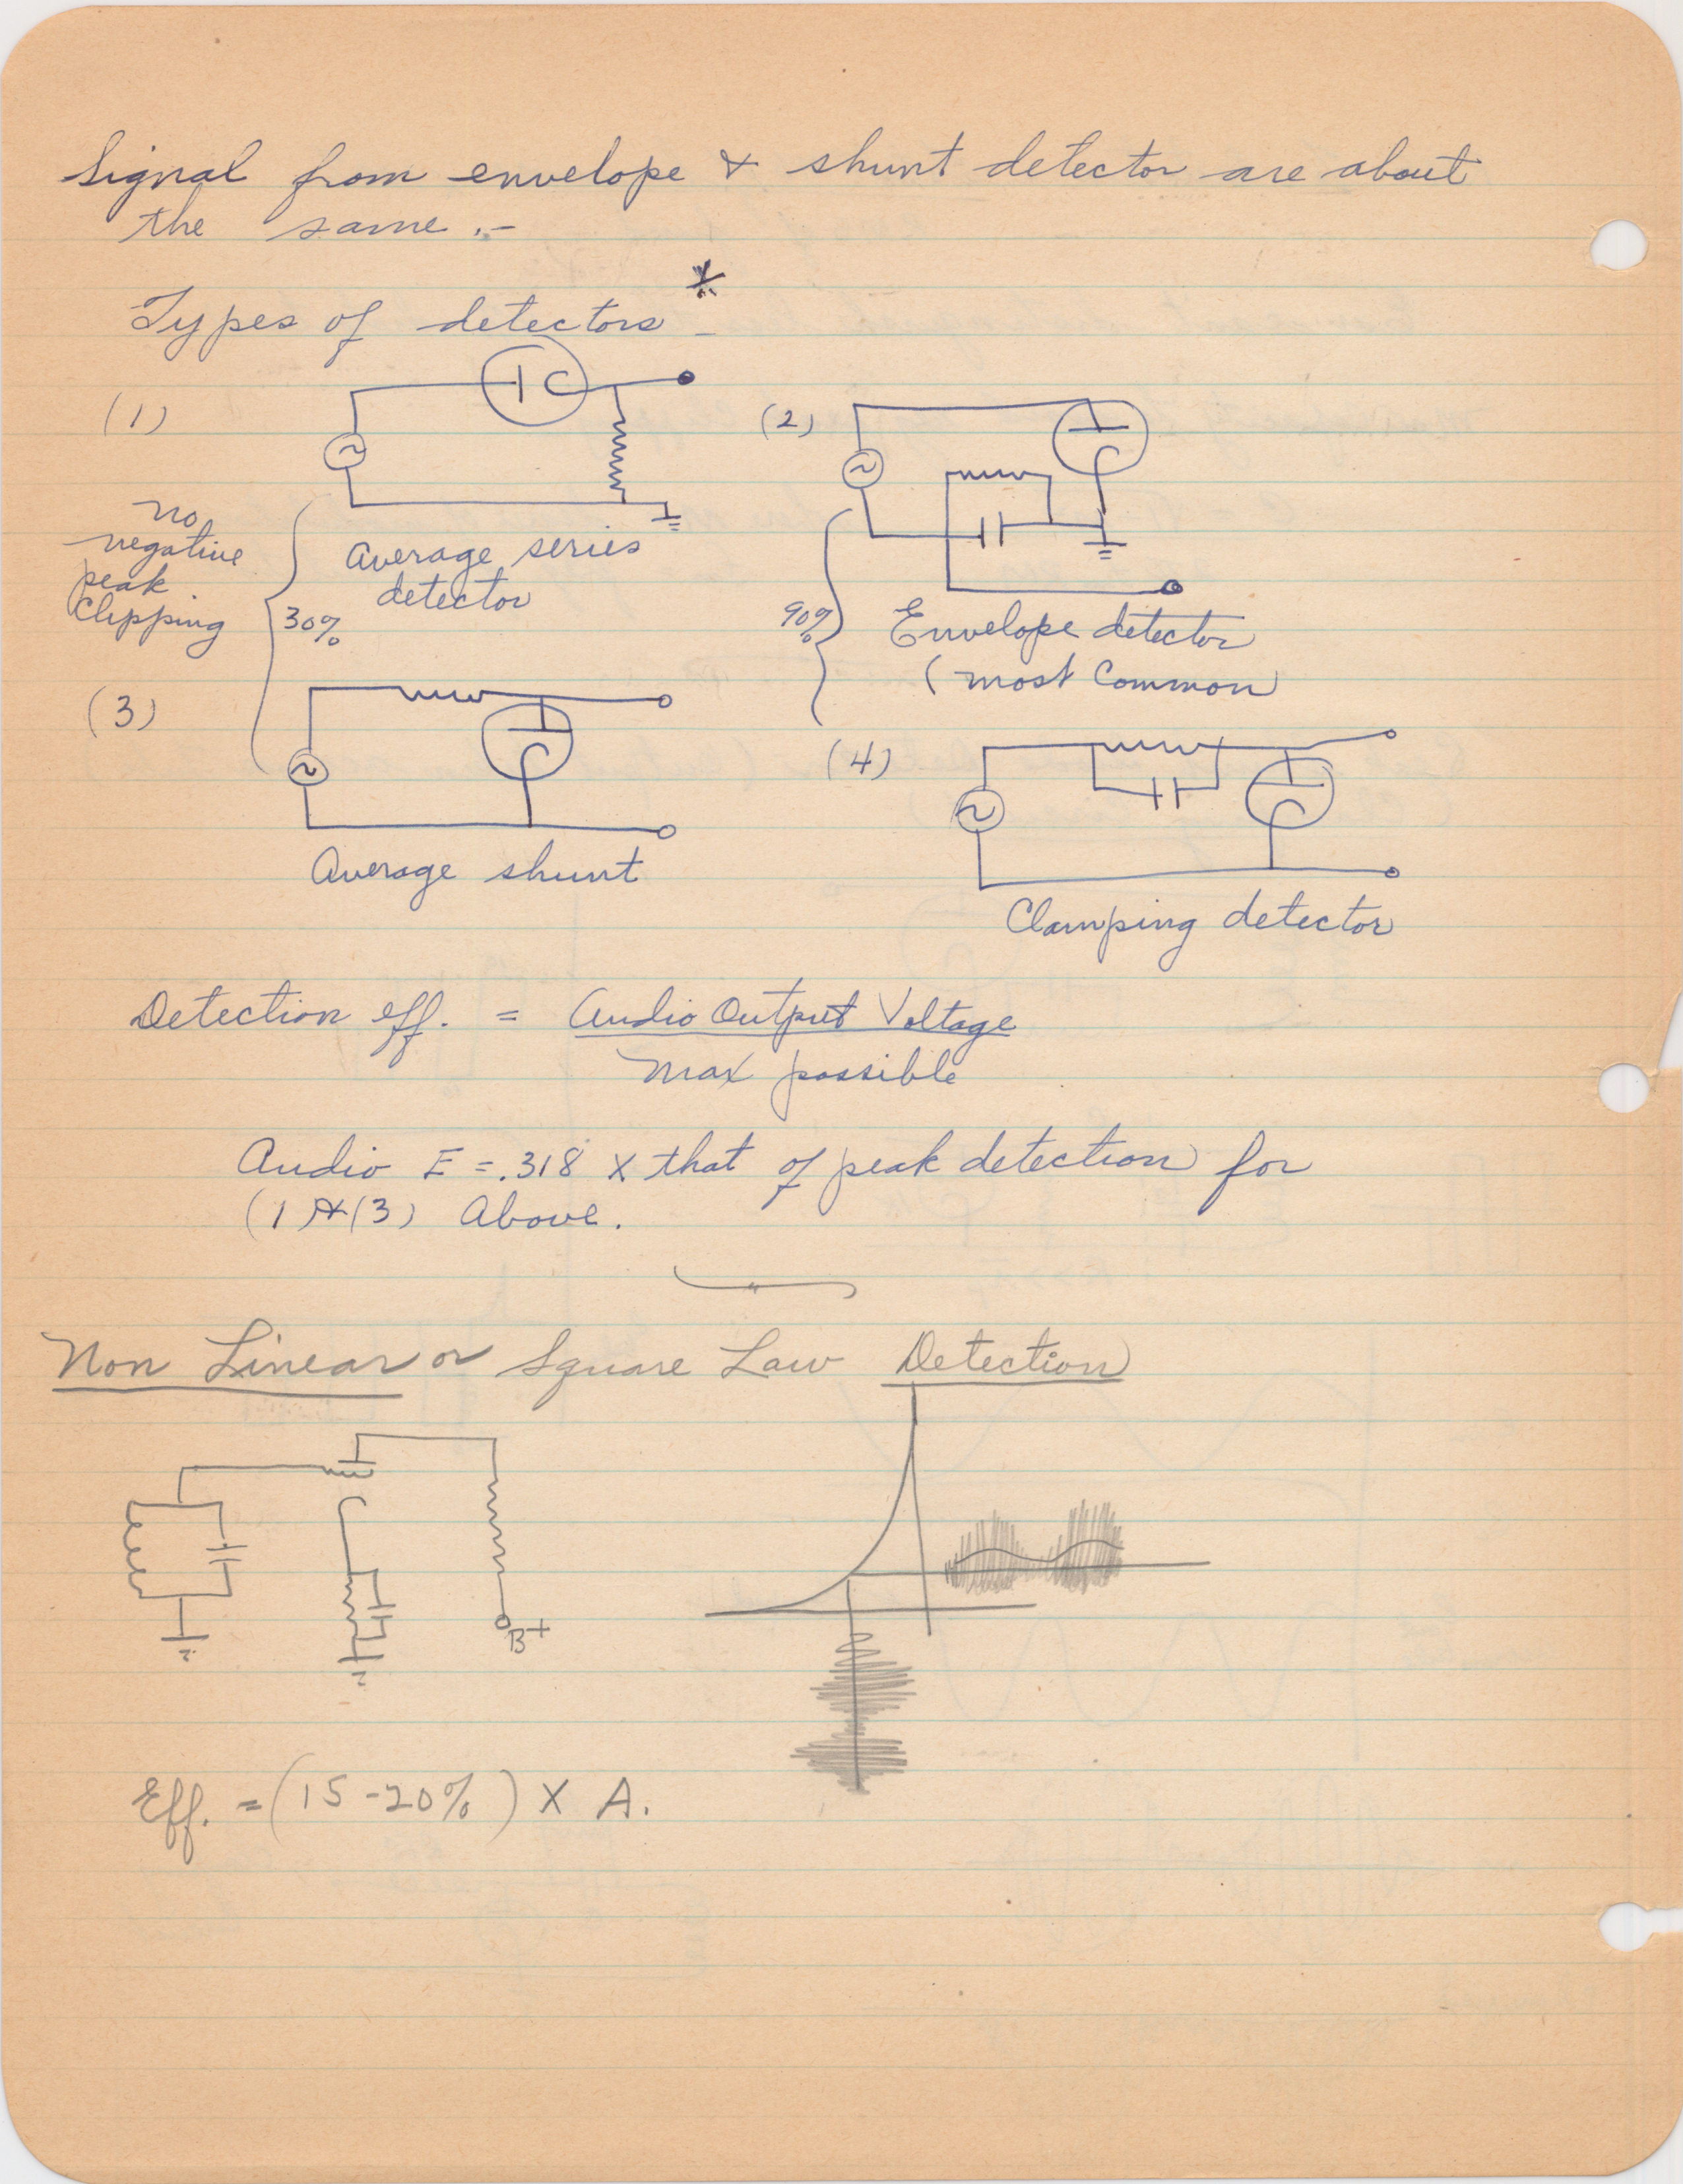 Signal from envelope & shunt detector are about
the same .-
*
Types of detectors -
(1)
(2)
no
negative
peak
Clipping
30%
Average series
detector
90%
Envelope detector
(most Common)
(3)
(4)
Average shunt
Clamping detector
Detection eff. = Audio Output Voltage
max possible
Audio E = .318 X that of peak detection for
(1) & (3) Above.
Non Linear or Square Law Detection
B+
Eff. = (15-20%) X A.